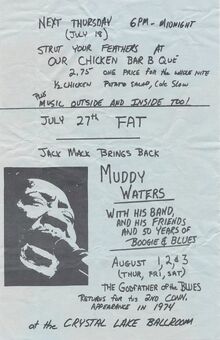 NEXT THURSDAY 6PM-MIDNIGHT
(JULY 18)
STRUT YOUR FEATHERS AT
OUR CHICKEN BAR B QUE'
2.75 ONE PRICE FOR THE WHOLE NITE
½ CHICKEN POTATO SALAD, COLE SLOW
PLUS
MUSIC OUTSIDE AND INSIDE TOO!
JULY 27th FAT
JACK MACK BRINGS BACK
MUDDY
WATERS
WITH HIS BAND,
AND HIS FRIENDS
AND 50 YEARS OF
BOOGIE & BLUES
AUGUST 1, 2, & 3
(THUR, FRI, SAT)
THE GODFATHER OF THE BLUES
RETURNS FOR HIS 2ND CONN.
APPEARANCE IN 1974
at the CRYSTAL LAKE BALLROOM